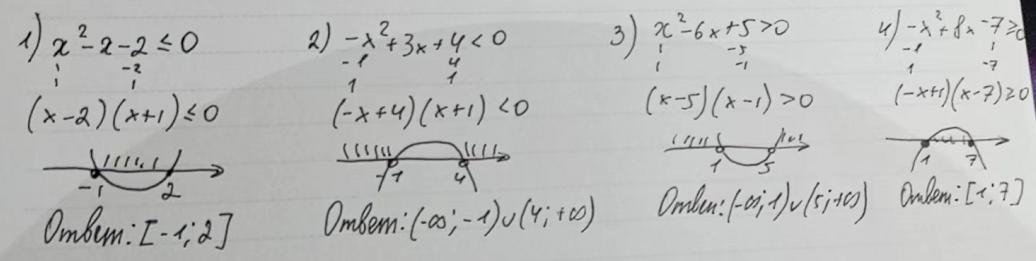 1) x² - x - 2 ≤ 0
1 -2
1 1
(x-2)(x+1) ≤ 0
-1 2
Ответ: [-1; 2]
2) -x² + 3x + 4 < 0
-1 4
1 1
(-x+4)(x+1) < 0
-1 4
Ответ: (-∞; -1) ∪ (4; +∞)
3) x² - 6x + 5 > 0
1 -5
1 -1
(x-5)(x-1) > 0
1 5
Ответ: (-∞; 1) ∪ (5; +∞)
4) -x² + 8x - 7 ≥ 0
-1 1
1 -7
(-x+1)(x-7) ≥ 0
1 7
Ответ: [1; 7]